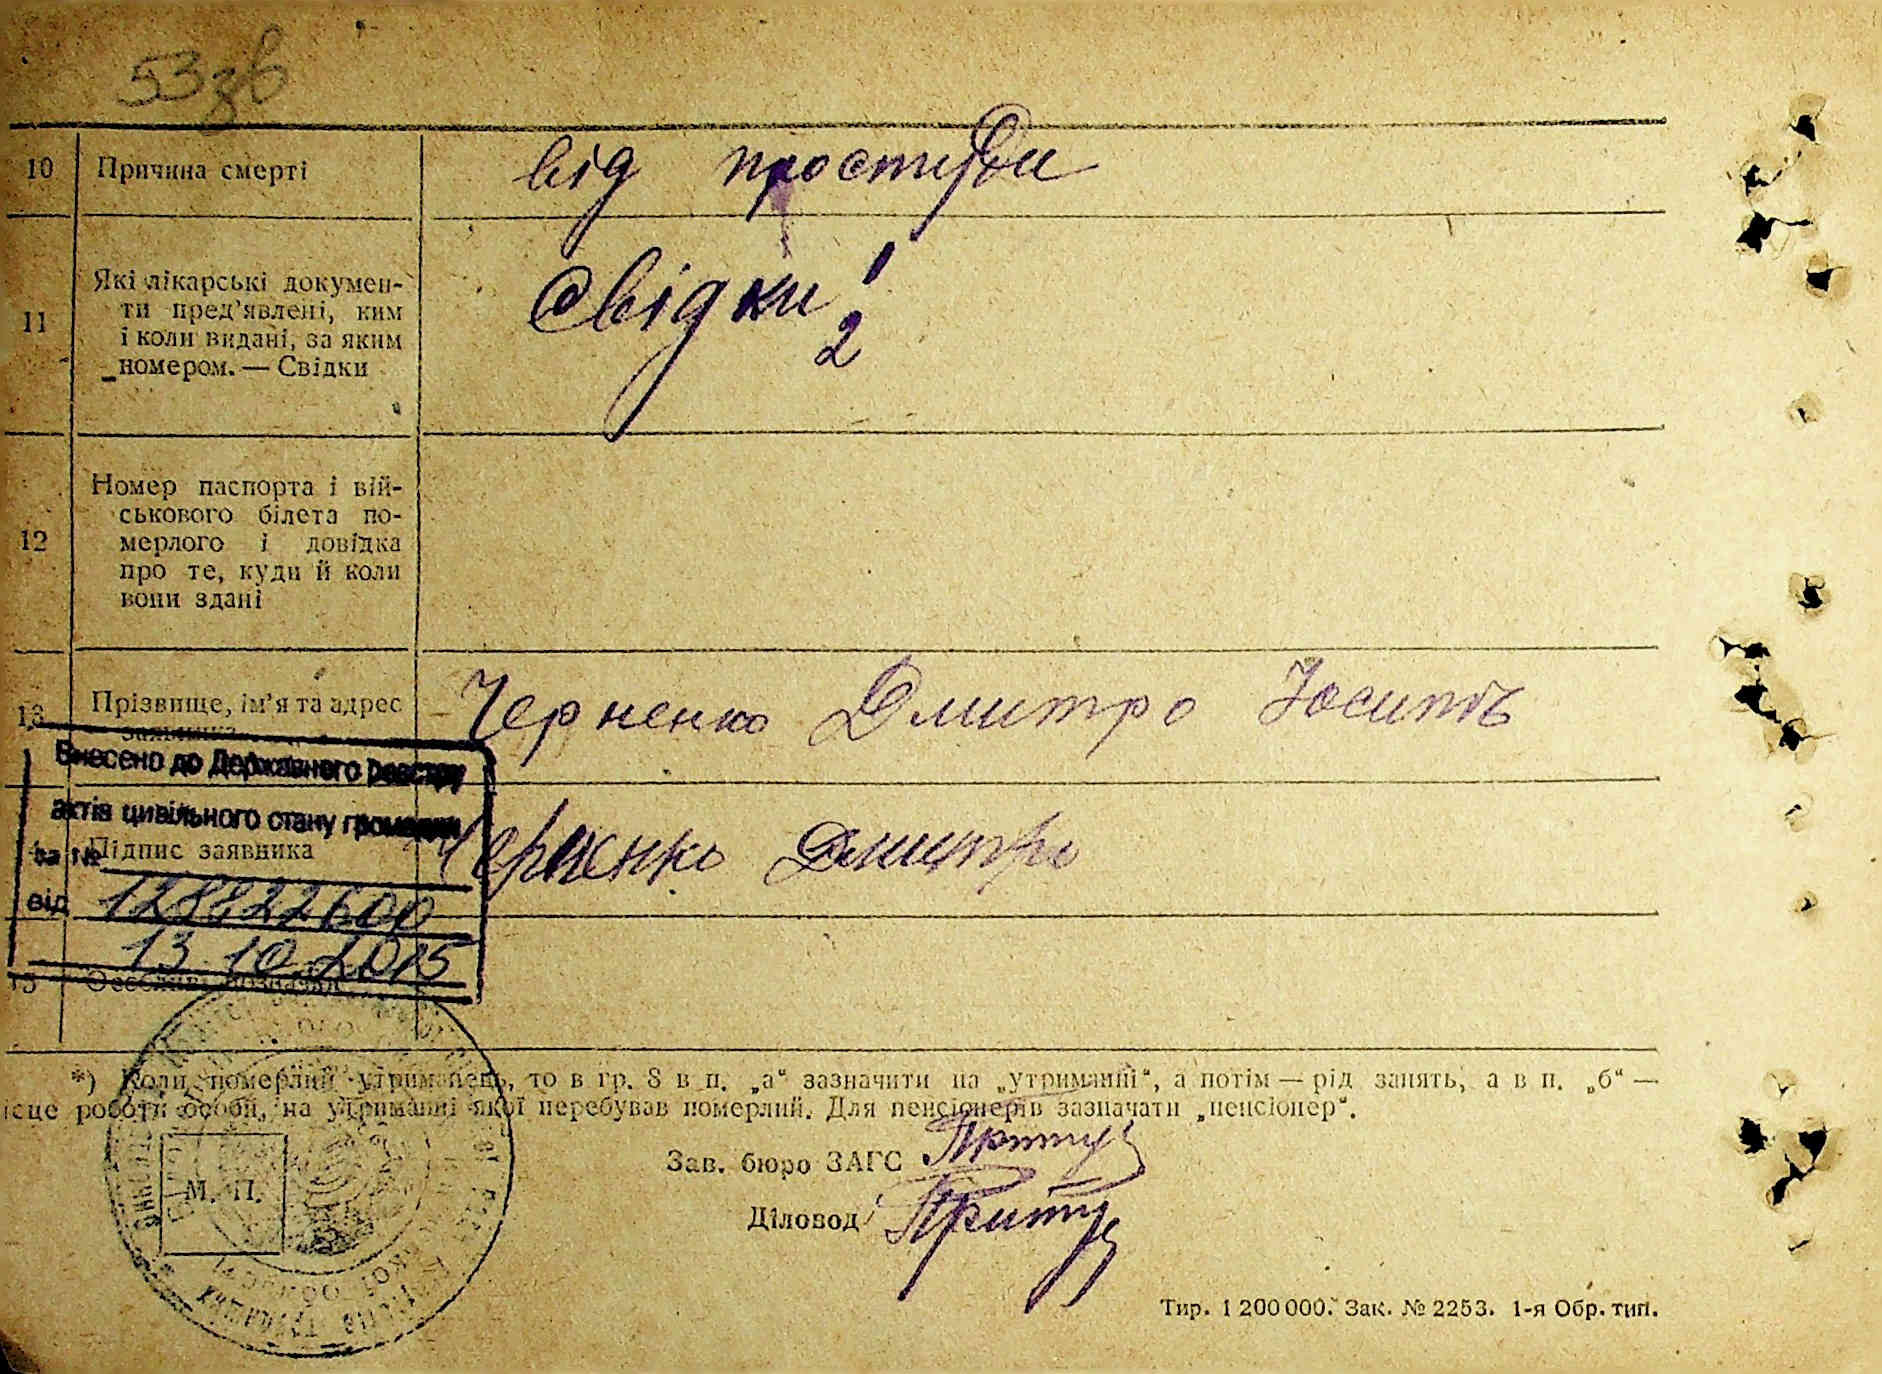 53зв
10 Причина смерті від простуди
11 Які лікарські докумен-
ти пред’явлені, ким
і коли видані, за яким
номером. — Свідки
Свідки 1
2
12 Номер паспорта і вій-
ськового білета по-
мерлого і довідка
про те, куди й коли
вони здані
13 Прізвище, ім’я та адрес
заявника
Черненко Дмитро Йосипів
Внесено до Державного реєстру
актів цивільного стану громадян
за №
Підпис заявника Черненко Дмитро
від 128822600
13.10.2015
15 Особливі позначки
*) Коли померлий утриманець, то в гр. 8 в п. „а“ зазначити на „утриманні“, а потім — рід занять, а в п. „б“ —
ісце роботи особи, на утриманні якої перебував померлий. Для пенсіонерів зазначати „пенсіонер“.
Зав. бюро ЗАГС
М. П.
Діловод
Тир. 1 200 000. Зак. № 2253. 1-я Обр. тип.